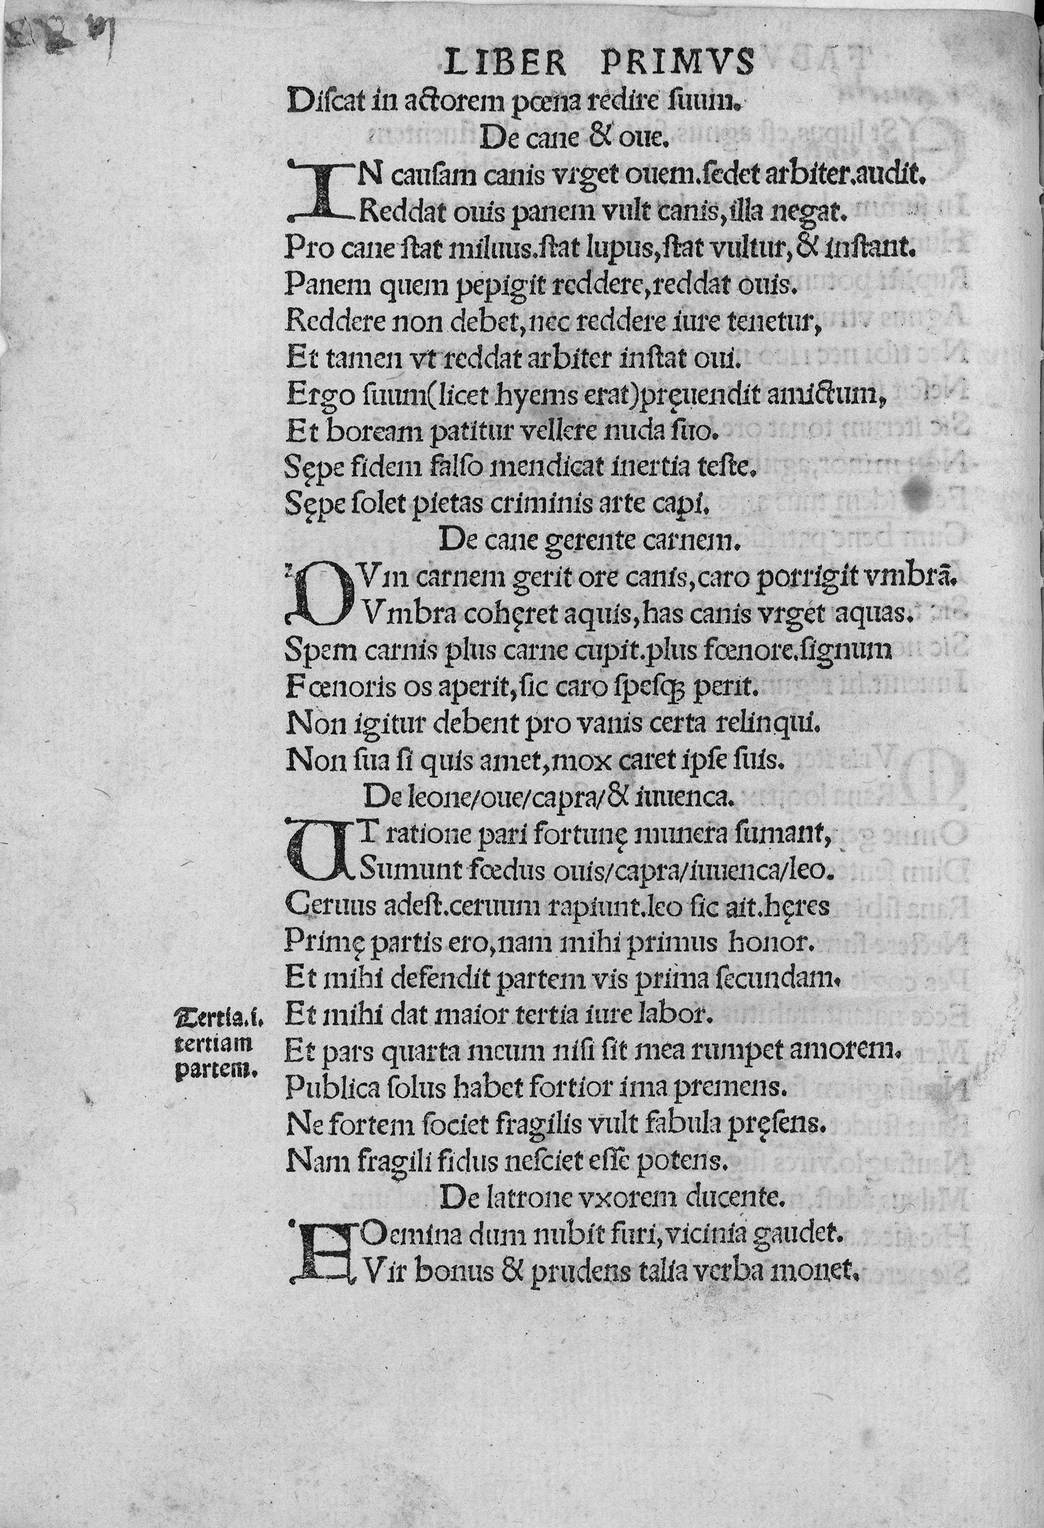 LIBER PRIMVS
Diſcat in actorem pœna redire ſuum.
De cane & oue.
IN cauſam canis vrget ouem.ſedet arbiter.audit.
Reddat ouis panem vult canis,illa negat.
Pro cane ſtat miluus.ſtat lupus,ſtat vultur,& inſtant.
Panem quem pepigit reddere,reddat ouis.
Reddere non debet,nec reddere iure tenetur,
Et tamen vt reddat arbiter inſtat oui.
Ergo ſuum(licet hyems erat)pręuendit amictum,
Et boream patitur vellere nuda ſuo.
Sępe fidem falſo mendicat inertia teſte.
Sępe ſolet pietas criminis arte capi.
De cane gerente carnem.
DVm carnem gerit ore canis,caro porrigit vmbrā.
Vmbra cohęret aquis,has canis vrget aquas.
Spem carnis plus carne cupit.plus fœnore.ſignum
Fœnoris os aperit,ſic caro ſpeſqꝫ perit.
Non igitur debent pro vanis certa relinqui.
Non ſua ſi quis amet,mox caret ipſe ſuis.
De leone/oue/capra/& iuuenca.
UT ratione pari fortunę munera ſumant,
Sumunt fœdus ouis/capra/iuuenca/leo.
Ceruus adeſt.ceruum rapiunt.leo ſic ait.hęres
Primę partis ero,nam mihi primus honor.
Et mihi defendit partem vis prima ſecundam.
Et mihi dat maior tertia iure labor.
Tertia.i.
tertiam
partem.
Et pars quarta meum niſi ſit mea rumpet amorem.
Publica ſolus habet fortior ima premens.
Ne fortem ſociet fragilis vult fabula pręſens.
Nam fragili fidus neſciet eſſe potens.
De latrone vxorem ducente.
FOemina dum nubit furi,vicinia gaudet.
Vir bonus & prudens talia verba monet.